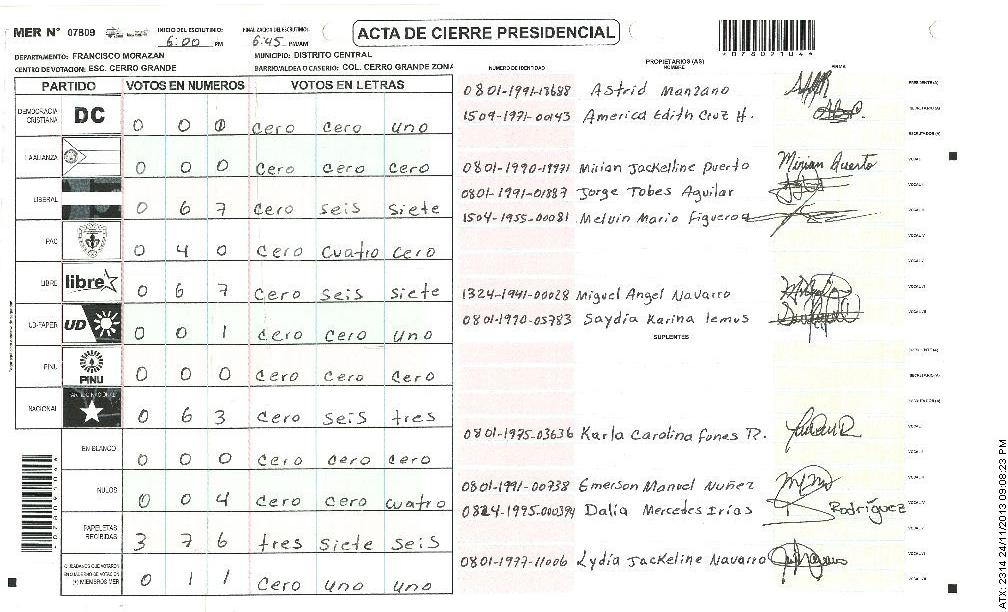 MER N° 07809
INICIO DEL ESCRUTINIO:
6:00 PM
FINALIZACION DEL ESCRUTINIO:
6:45 PM/AM
ACTA DE CIERRE PRESIDENCIAL
DEPARTAMENTO: FRANCISCO MORAZAN
MUNICIPIO: DISTRITO CENTRAL
CENTRO DE VOTACION: ESC. CERRO GRANDE
BARRIO/ALDEA O CASERIO: COL. CERRO GRANDE ZONA
PARTIDO VOTOS EN NUMEROS VOTOS EN LETRAS
DEMOCRACIA CRISTIANA DC 0 0 cero cero uno
LA ALIANZA 0 0 0 cero cero cero
LIBERAL 0 6 7 cero seis siete
PAC 0 4 0 cero cuatro cero
LIBRE libre 0 6 7 cero seis siete
UD-FAPER UD 0 0 1 cero cero uno
PINU PINU 0 0 0 cero cero cero
NACIONAL 0 6 3 cero seis tres
EN BLANCO 0 0 0 cero cero cero
NULOS 0 0 4 cero cero cuatro
PAPELETAS RECIBIDAS 3 7 6 tres siete seis
CIUDADANOS QUE VOTARON EN CUADERNO DE VOTACION (+) MIEMBROS MER 0 1 1 cero uno uno
NUMERO DE IDENTIDAD PROPIETARIOS (AS) NOMBRE FIRMA
0801-1991-13688 Astrid Manzano
1509-1971-00143 America Edith Cruz H.
0801-1990-19971 Mirian Jackelline Puerto Mirian Puerto
0801-1991-01887 Jorge Tobes Aguilar
1504-1955-00081 Melvin Mario Figueroa
1324-1941-00028 Miguel Angel Navarro
0801-1970-05783 Saydia Karina lemus
SUPLENTES
0801-1975-03636 Karla Carolina Funes R.
0801-1991-00738 Emerson Manuel Nuñez
0824-1995-000394 Dalia Mercedes Irias Rodríguez
0801-1977-11006 Lydia Jackeline Navarro
ATX: 2314 24/11/2013 09:08:23 PM